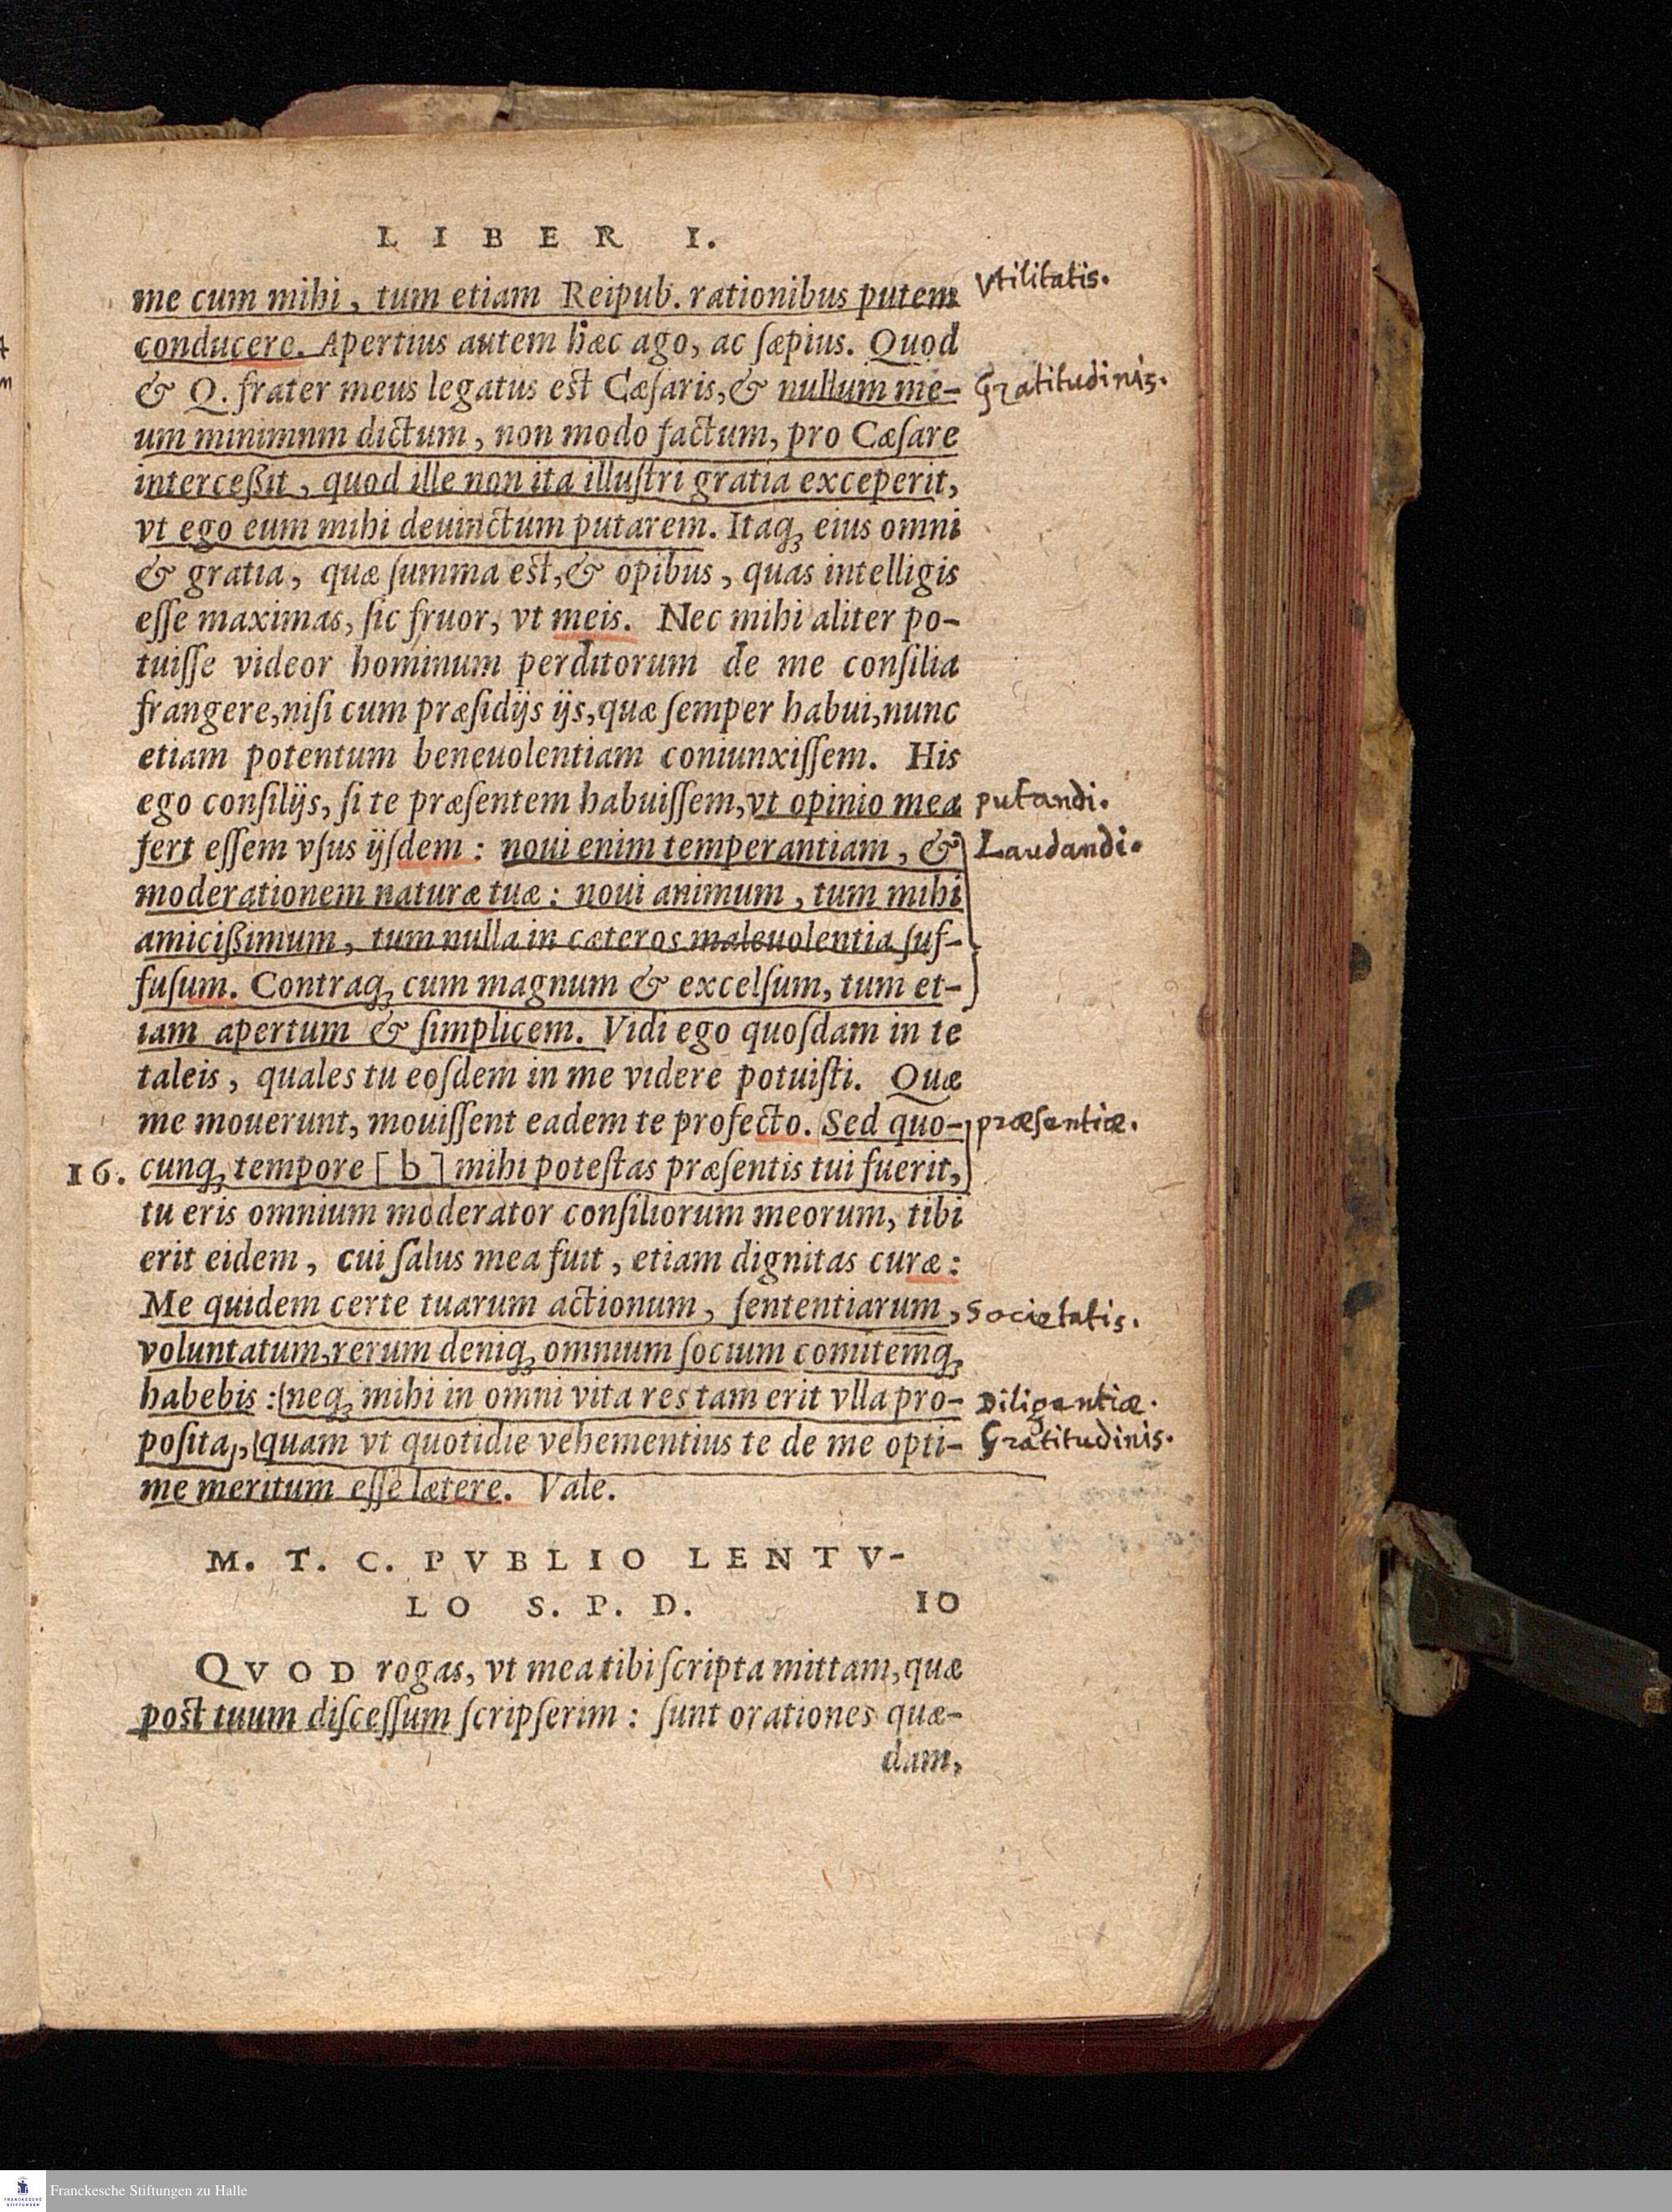 LIBER I.
me cum mihi, tum etiam Reipub. rationibus putem
Vtilitatis.
conducere. Apertius autem hæc ago, ac ſæpius. Quod
& Q. frater meus legatus est Cæſaris, & nullum me-
Gratitudinis.
um minimnm dictum, non modo factum, pro Cæſare
interceßit, quod ille non ita illuſtri gratia exceperit,
vt ego eum mihi deuinctum putarem. Itaq; eius omni
& gratia, quæ ſumma est, & opibus, quas intelligis
eſſe maximas, ſic fruor, vt meis. Nec mihi aliter po-
tuiſſe videor hominum perditorum de me conſilia
frangere, niſi cum præſidijs ijs, quæ ſemper habui, nunc
etiam potentum beneuolentiam coniunxiſſem. His
ego conſilijs, ſi te præſentem habuiſſem, vt opinio mea
putandi.
fert eſſem vſus ijſdem : noui enim temperantiam, &
Laudandi.
moderationem naturæ tuæ : noui animum, tum mihi
amicißimum, tum nulla in cæteros maleuolentia ſuf-
fuſum. Contraq; cum magnum & excelſum, tum et-
iam apertum & ſimplicem. Vidi ego quoſdam in te
taleis, quales tu eoſdem in me videre potuiſti. Quæ
me mouerunt, mouiſſent eadem te profecto. Sed quo-
præſentiæ.
16. cunq; tempore [b] mihi poteſtas præſentis tui fuerit,
tu eris omnium moderator conſiliorum meorum, tibi
erit eidem, cui ſalus mea fuit, etiam dignitas curæ :
Me quidem certe tuarum actionum, ſententiarum,
Societatis.
voluntatum, rerum deniq; omnium ſocium comitemq;
habebis : neq; mihi in omni vita res tam erit vlla pro-
Diligentiæ.
poſita, quam vt quotidie vehementius te de me opti-
Gratitudinis.
me meritum eſſe lætere. Vale.
M. T. C. PVBLIO LENTV-
LO S. P. D. 10
QVOD rogas, vt mea tibi ſcripta mittam, quæ
post tuum diſceſſum ſcripſerim : ſunt orationes quæ-
dam,
Franckesche Stiftungen zu Halle
FRANCKESCHE
STIFTUNGEN